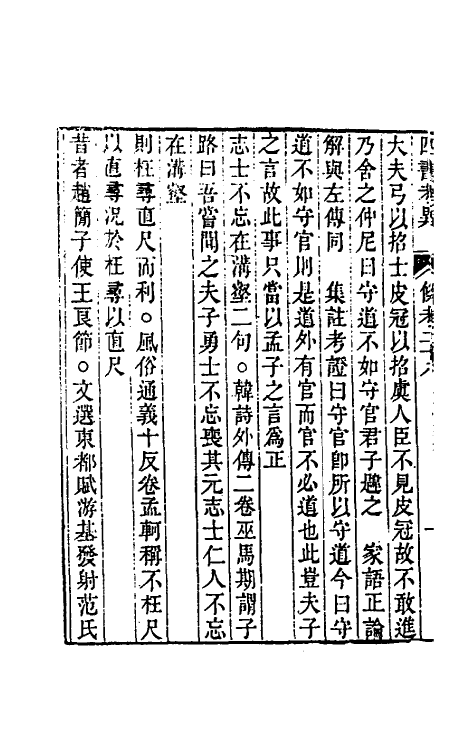 四書考異 條考二十八 一
大夫弓以招士皮冠以招虞人臣不見皮冠故不敢進
乃舍之仲尼曰守道不如守官君子韙之 家語正論
解與左傳同 集註考證曰守官卽所以守道今曰守
道不如守官則是道外有官而官不必道也此豈夫子
之言故此事只當以孟子之言爲正
志士不忘在溝壑二句○韓詩外傳二卷巫馬期謂子
路曰吾嘗聞之夫子勇士不忘喪其元志士仁人不忘
在溝壑
則枉尋直尺而利○風俗通義十反卷孟軻稱不枉尺
以直尋況於枉尋以直尺
昔者趙簡子使王良節○文選東都賦游基發射范氏